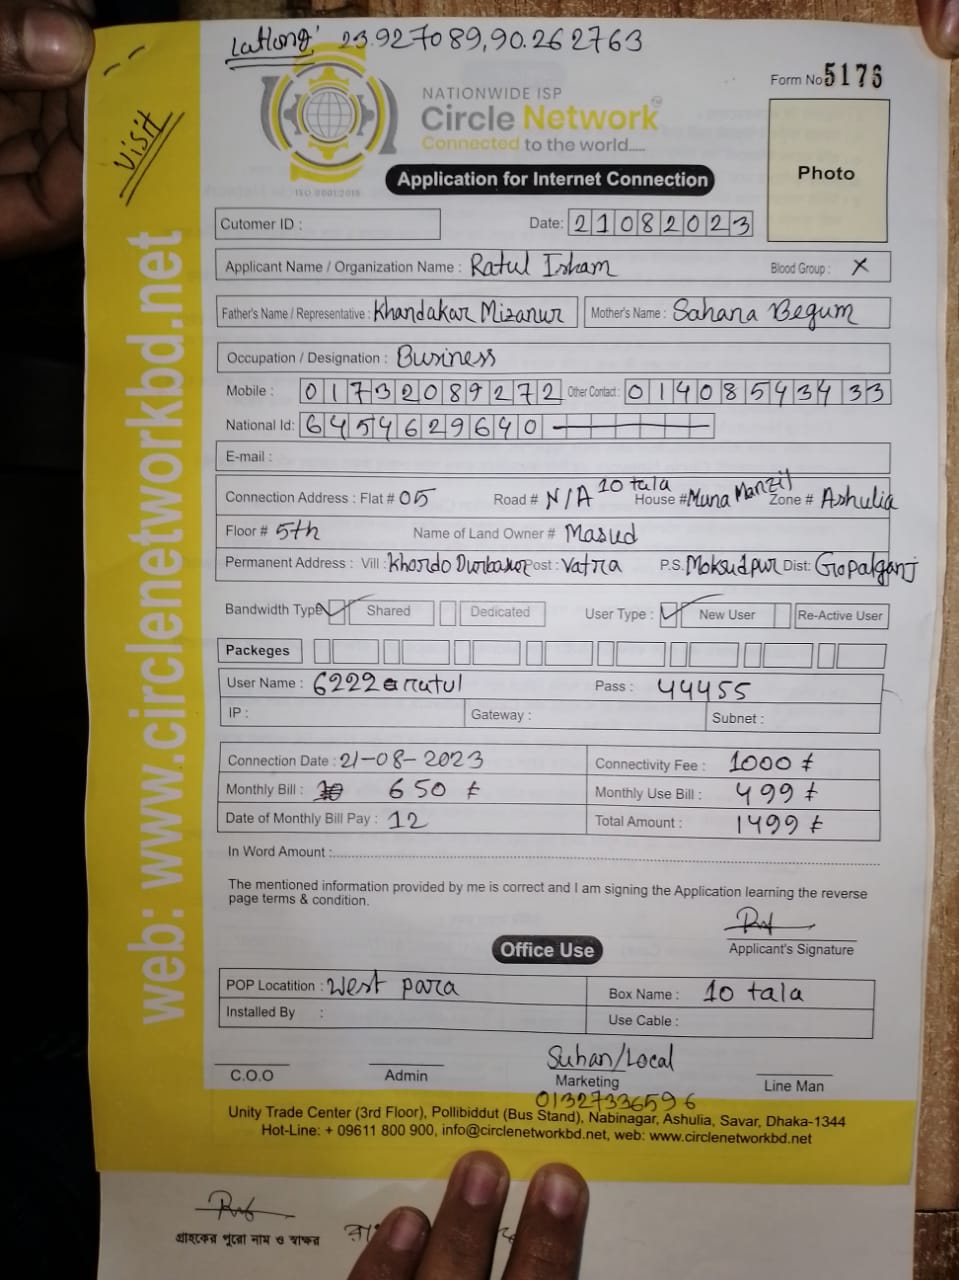 Latlong: 23.927089,90.262763
Form No 5176
VISIT
NATIONWIDE ISP
Circle Network
Connected to the world.....
ISO 9001:2015
Application for Internet Connection
Photo
web: www.circlenetworkbd.net
Cutomer ID :
Date: 21082023
Applicant Name / Organization Name : Ratul Islam Blood Group : X
Father's Name / Representative : Khandakar Mizanur Mother's Name : Sahana Begum
Occupation / Designation : Business
Mobile : 01732089272 Other Contact : 01408543433
National Id: 6454629640
E-mail :
Connection Address : Flat # 05 Road # N/A 10 tala House # Muna Manzil Zone # Ashulia
Floor # 5th Name of Land Owner # Masud
Permanent Address : Vill : Khordo Post : Vatra P.S. Moksudpur Dist: Gopalganj
Bandwidth Type Shared Dedicated User Type : New User Re-Active User
Packeges
User Name : 6222@ratul Pass : 44455
IP : Gateway : Subnet :
Connection Date : 21-08-2023 Connectivity Fee : 1000 ৳
Monthly Bill : 650 ৳ Monthly Use Bill : 499 ৳
Date of Monthly Bill Pay : 12 Total Amount : 1499 ৳
In Word Amount :
The mentioned information provided by me is correct and I am signing the Application learning the reverse
page terms & condition.
Applicant's Signature
Office Use
POP Locatition : West para Box Name : 10 tala
Installed By : Use Cable :
Suhan/Local
C.O.O Admin Marketing Line Man
01327336596
Unity Trade Center (3rd Floor), Pollibiddut (Bus Stand), Nabinagar, Ashulia, Savar, Dhaka-1344
Hot-Line: + 09611 800 900, info@circlenetworkbd.net, web: www.circlenetworkbd.net
গ্রাহকের পুরো নাম ও স্বাক্ষর